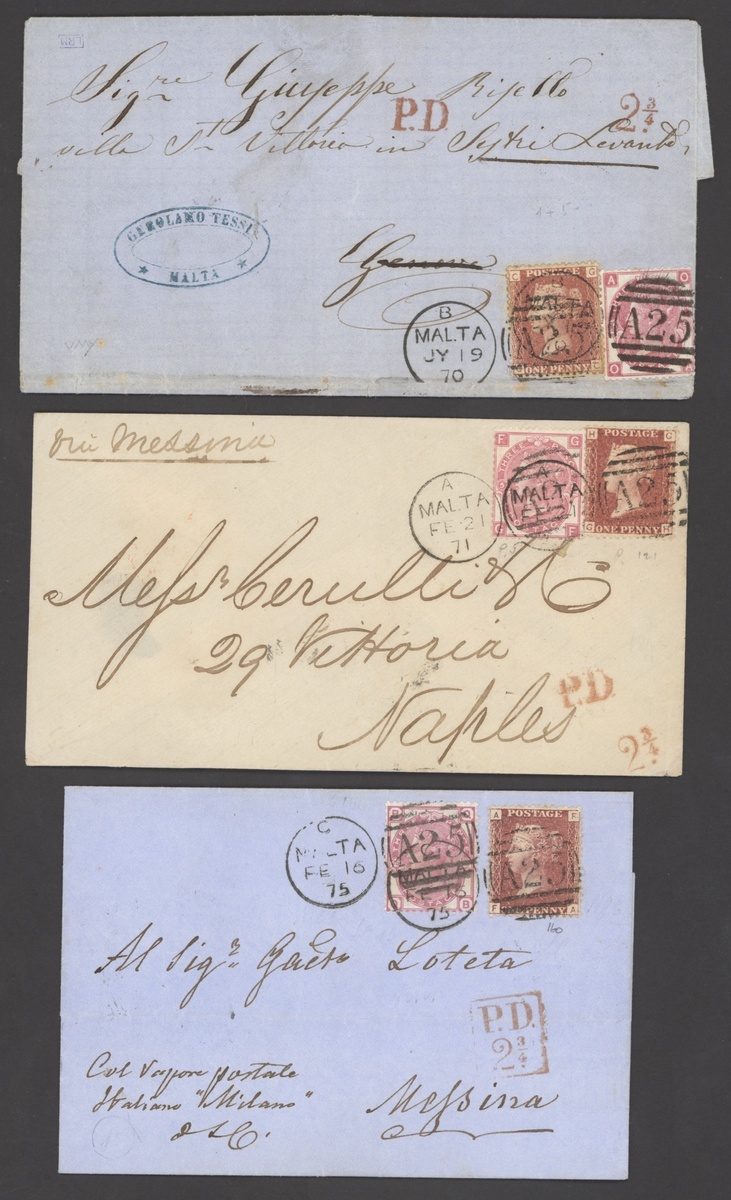 Sigre Giuseppe
P.D.
2 3/4
villa Sta Vittoria in Sestri Levante
GEROLAMO TESSI
MALTA
Genova
B
MALTA
JY 19
70
C POSTAGE G
MALTA
A25
ONE PENNY
A O
A25
O A
via Messina
A
MALTA
FE 21
71
F G
THREE PENCE
G F
A
MALTA
FE 21
H POSTAGE G
A25
G ONE PENNY H
Messrs Cerulli & Co
29 Vittoria
Naples
P.D.
2 3/4
C
MALTA
FE 16
75
A25
MALTA
FE 16
75
B
A POSTAGE F
A25
F PENNY A
160
Al Sigr Gaeto Loteta
P.D.
2 3/4
Col Vapore postale
Italiano "Milano"
Messina